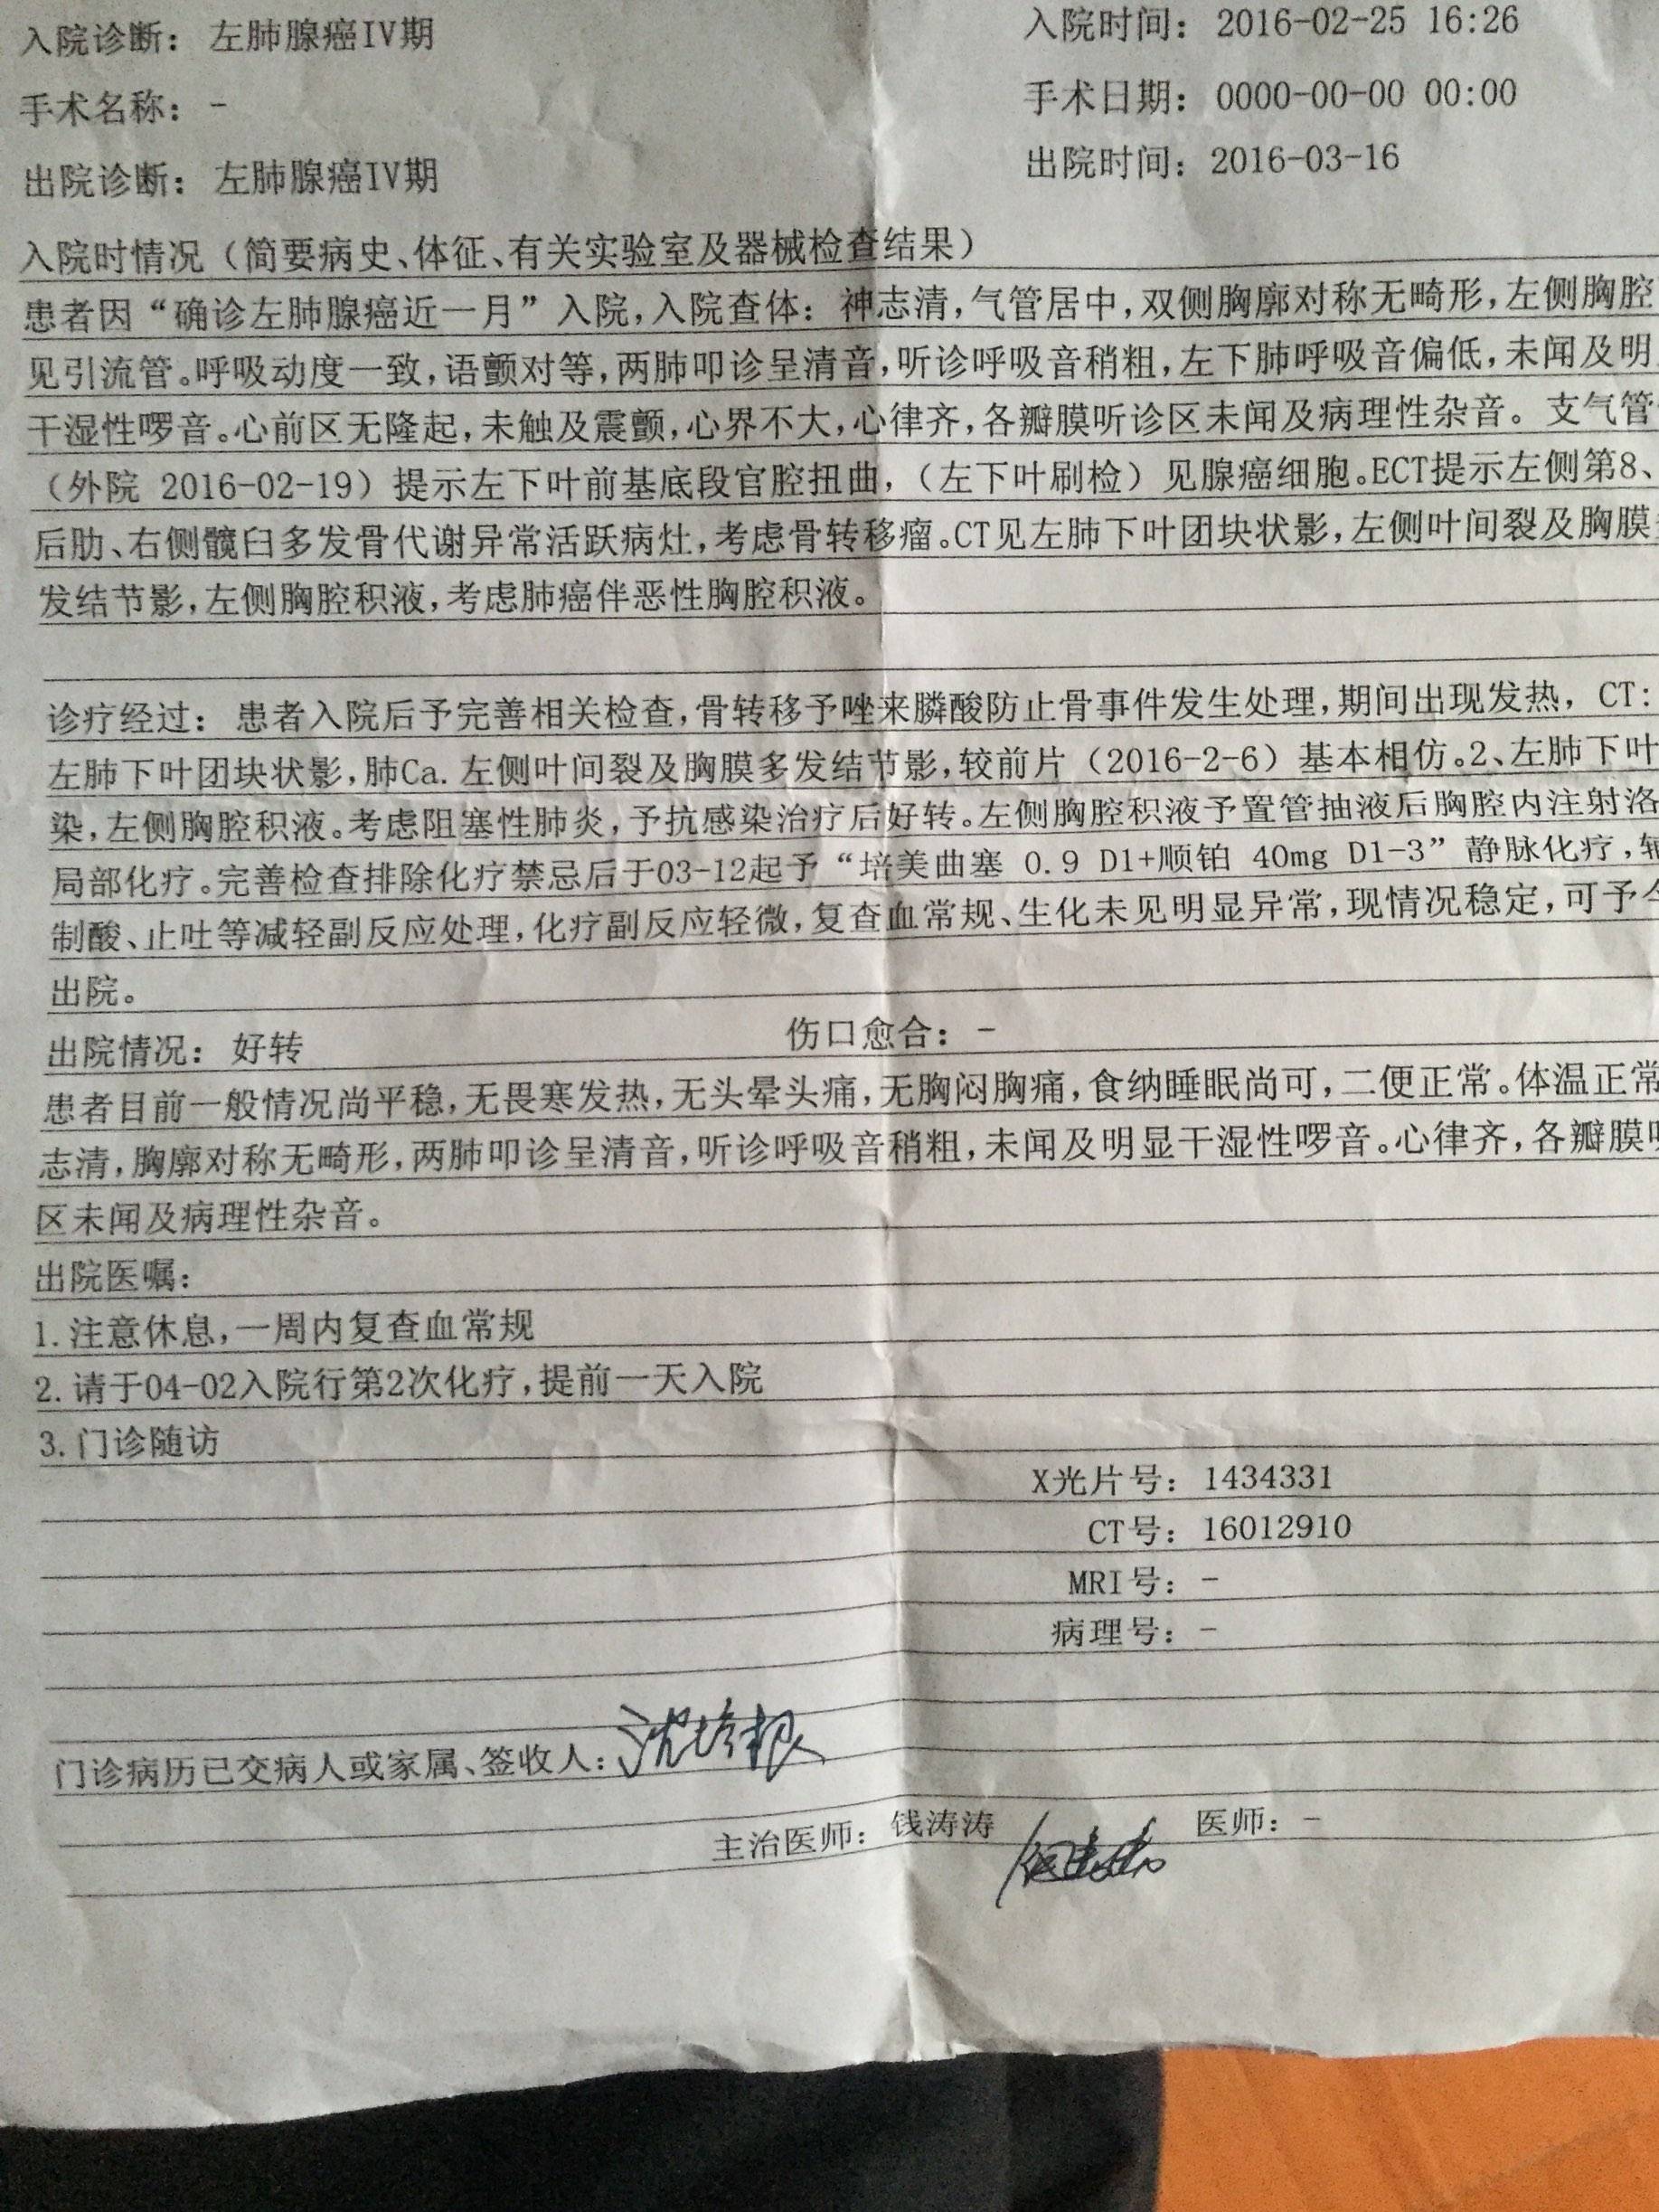 入院诊断：左肺腺癌IV期 入院时间：2016-02-25 16:26
手术名称：- 手术日期：0000-00-00 00:00
出院诊断：左肺腺癌IV期 出院时间：2016-03-16
入院时情况（简要病史、体征、有关实验室及器械检查结果）
患者因“确诊左肺腺癌近一月”入院，入院查体：神志清，气管居中，双侧胸廓对称无畸形，左侧胸腔
见引流管。呼吸动度一致，语颤对等，两肺叩诊呈清音，听诊呼吸音稍粗，左下肺呼吸音偏低，未闻及明
干湿性啰音。心前区无隆起，未触及震颤，心界不大，心律齐，各瓣膜听诊区未闻及病理性杂音。支气管
（外院 2016-02-19）提示左下叶前基底段官腔扭曲，（左下叶刷检）见腺癌细胞。ECT提示左侧第8、
后肋、右侧髋臼多发骨代谢异常活跃病灶，考虑骨转移瘤。CT见左肺下叶团块状影，左侧叶间裂及胸膜
发结节影，左侧胸腔积液，考虑肺癌伴恶性胸腔积液。
诊疗经过：患者入院后予完善相关检查，骨转移予唑来膦酸防止骨事件发生处理，期间出现发热，CT:
左肺下叶团块状影，肺Ca.左侧叶间裂及胸膜多发结节影，较前片（2016-2-6）基本相仿。2、左肺下叶
染，左侧胸腔积液。考虑阻塞性肺炎，予抗感染治疗后好转。左侧胸腔积液予置管抽液后胸腔内注射洛
局部化疗。完善检查排除化疗禁忌后于03-12起予“培美曲塞 0.9 D1+顺铂 40mg D1-3”静脉化疗，
制酸、止吐等减轻副反应处理，化疗副反应轻微，复查血常规、生化未见明显异常，现情况稳定，可予
出院。
出院情况：好转 伤口愈合：-
患者目前一般情况尚平稳，无畏寒发热，无头晕头痛，无胸闷胸痛，食纳睡眠尚可，二便正常。体温正常
志清，胸廓对称无畸形，两肺叩诊呈清音，听诊呼吸音稍粗，未闻及明显干湿性啰音。心律齐，各瓣膜
区未闻及病理性杂音。
出院医嘱：
1.注意休息，一周内复查血常规
2.请于04-02入院行第2次化疗，提前一天入院
3.门诊随访
X光片号：1434331
CT号：16012910
MRI号：-
病理号：-
门诊病历已交病人或家属、签收人：
主治医师：钱涛涛 医师：-